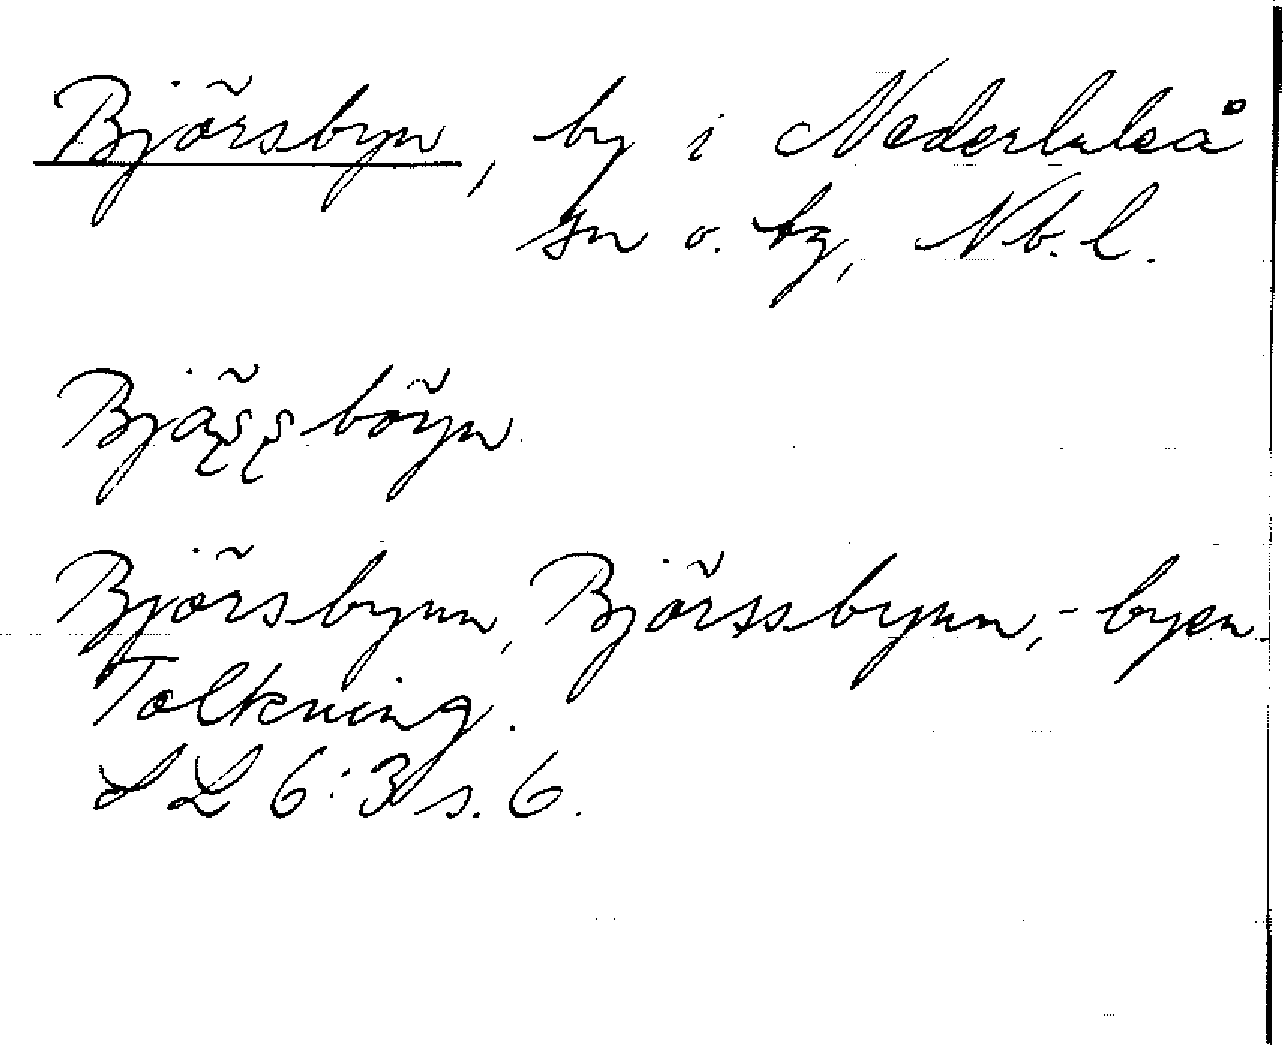 Björsbyn, by i Nederluleå
sn o. tg, Nb. l.
Bjäʂʂböyn
Björsbynn, Björssbynn, -byen.
Tolkning.
SL 6:3 s. 6.